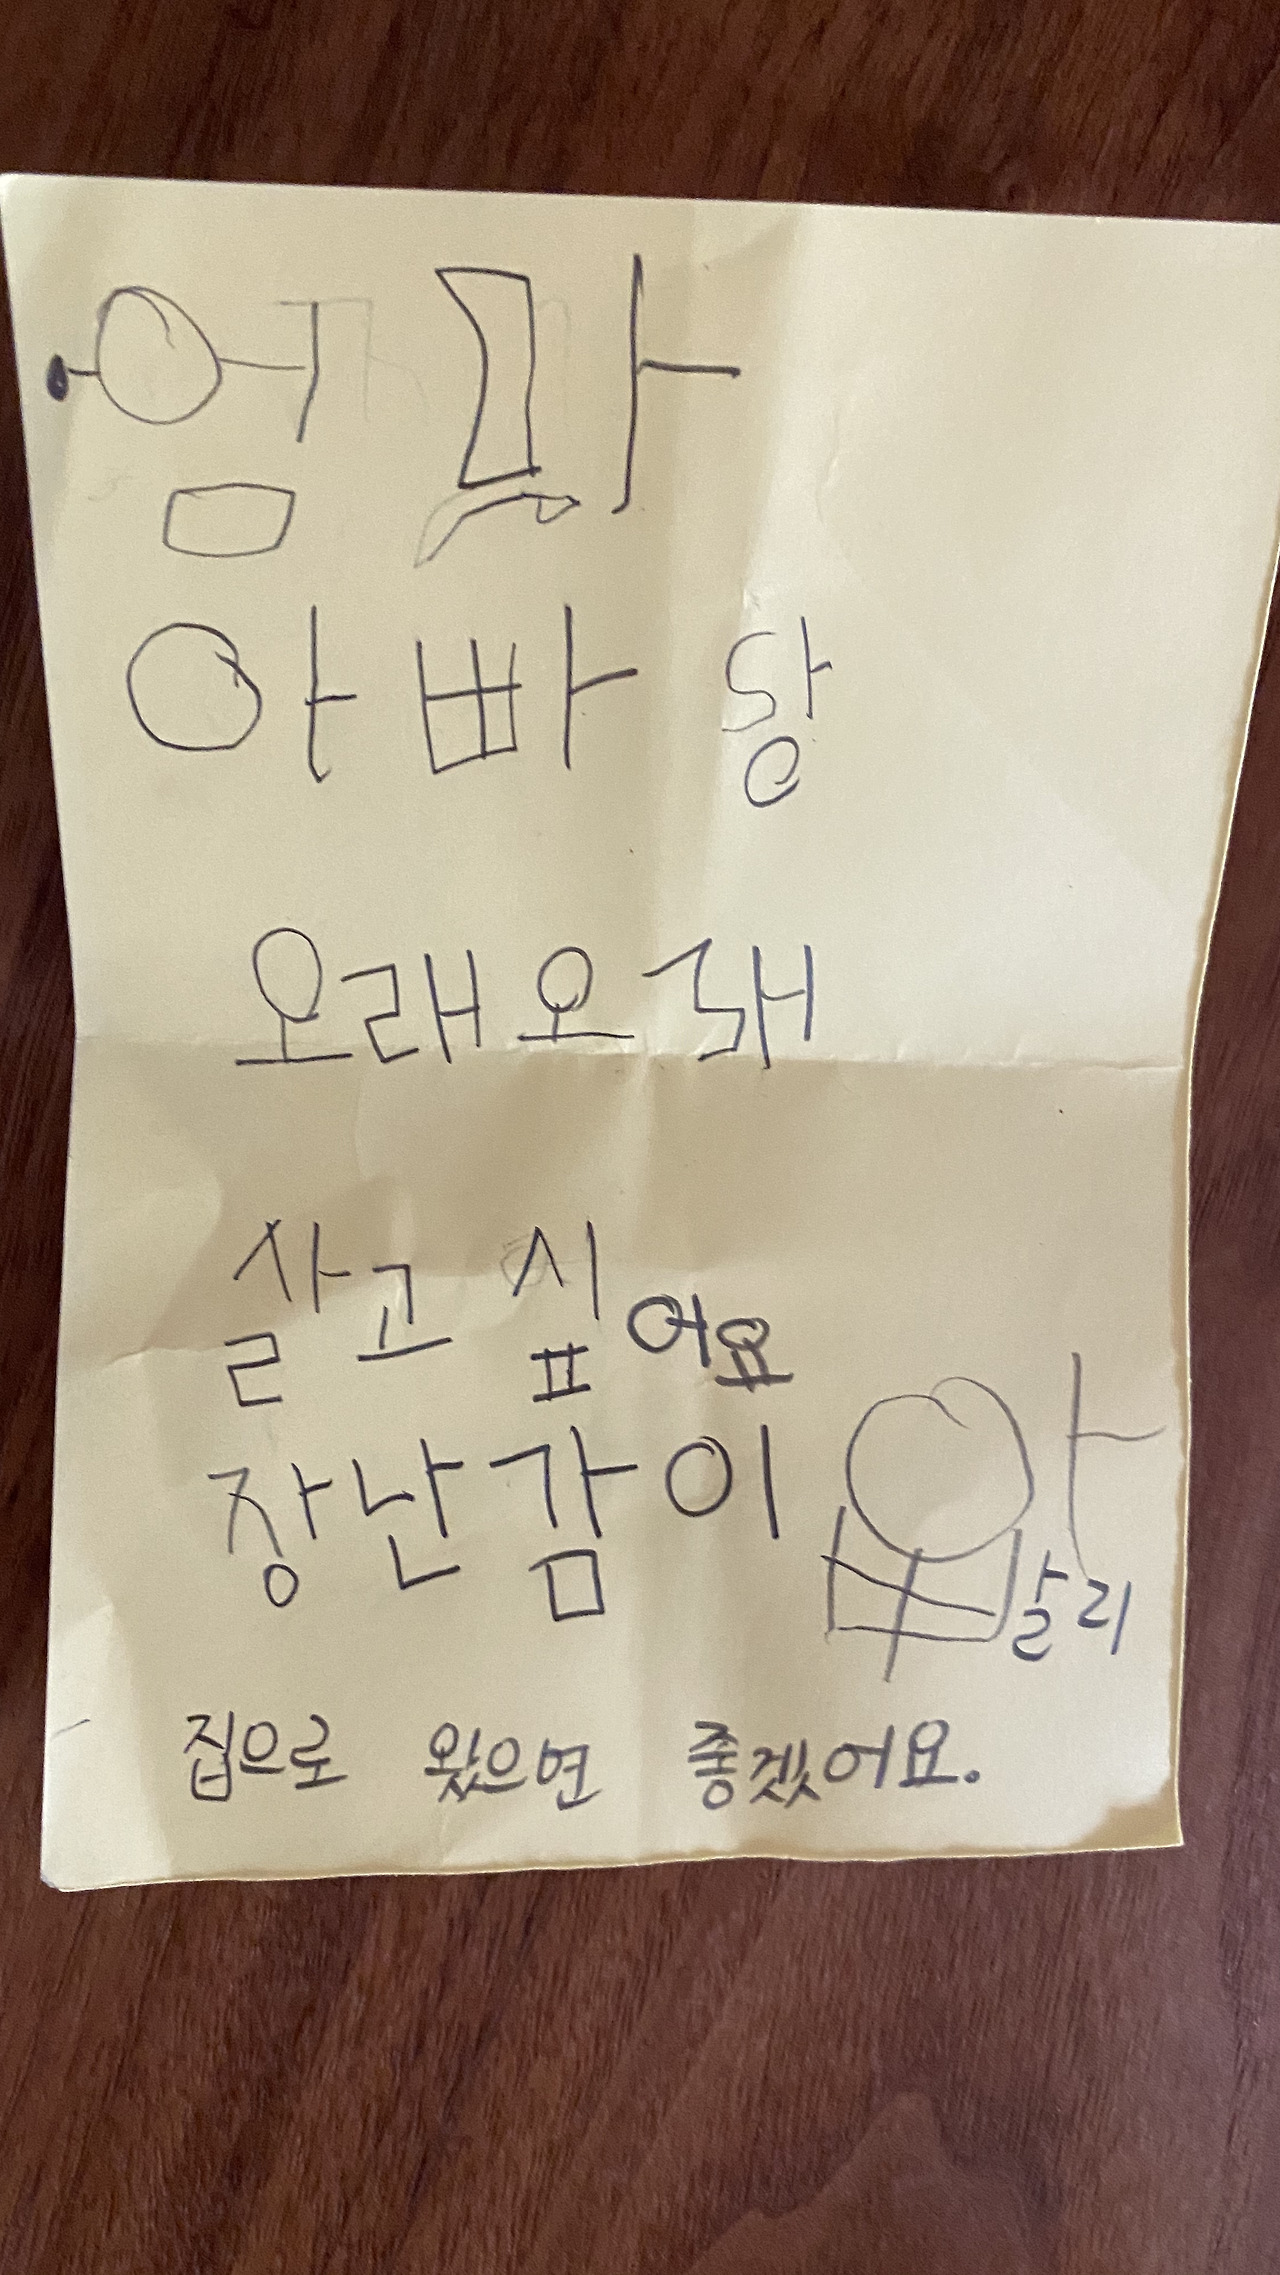 엄마
아빠 당
오래오래
살고 싶어요
장난감이 빨리
집으로 왔으면 좋겠어요.